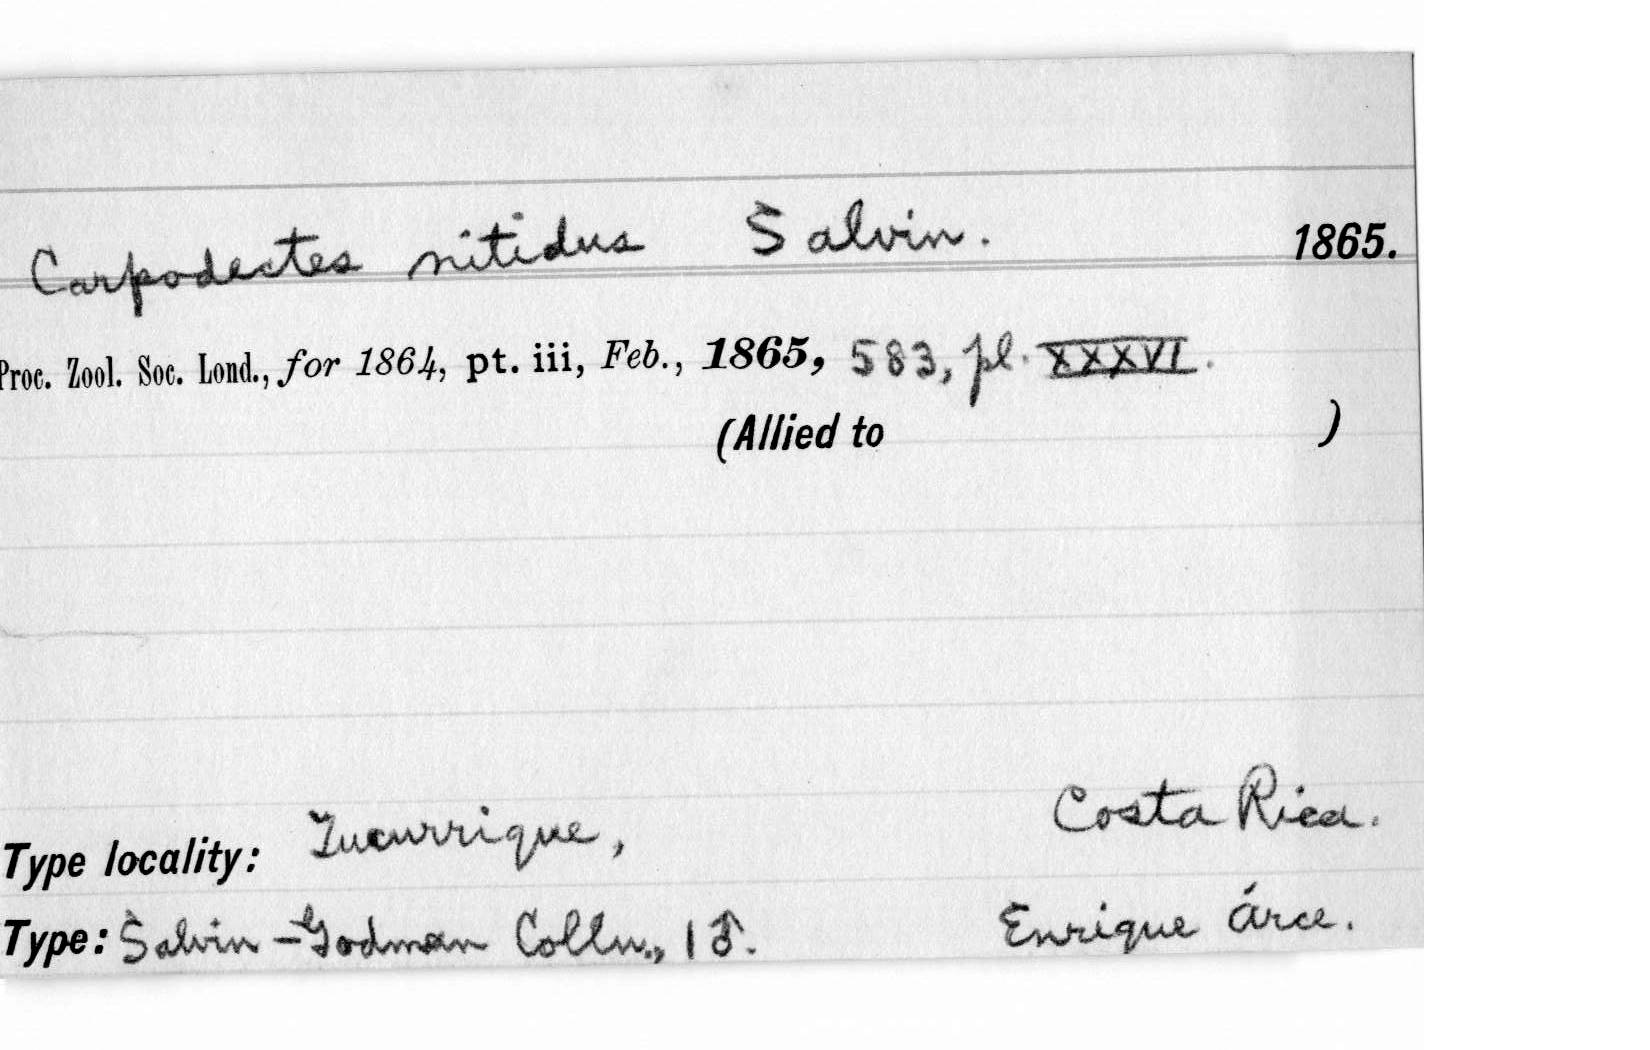 Carpodectes nitidus Salvin. 1865.
Proc. Zool. Soc. Lond., for 1864, pt. iii, Feb., 1865, 583, pl. XXXVI.
(Allied to )
Type locality: Tucurrique, Costa Rica.
Type: Salvin-Godman Colln., 1 ♂. Enrique Árce.